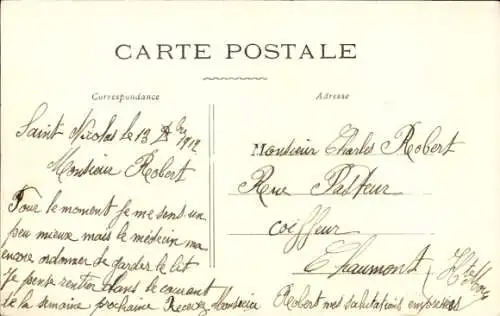 CARTE POSTALE
Correspondance
Adresse
Saint Nicolas le 13 Xbre 1912
Monsieur Robert
Pour le moment je me sens un
peu mieux mais le médecin ma
encore ordonner de garder le lit
Je pense rentrer dans le courant
de la semaine prochaine Recevez Monsieur Robert mes salutations empressées
Monsieur Charles Robert
Rue Pasteur
coiffeur
Chaumont